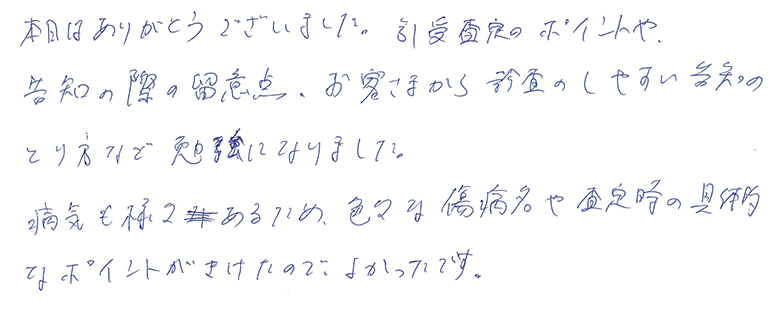 本日はありがとうございました。引受査定のポイントや、
告知の際の留意点、お客さまから診査のしやすい告知の
とり方など勉強になりました。
病気も様々あるため、色々な傷病名や査定時の具体的
なポイントがきけたので、よかったです。